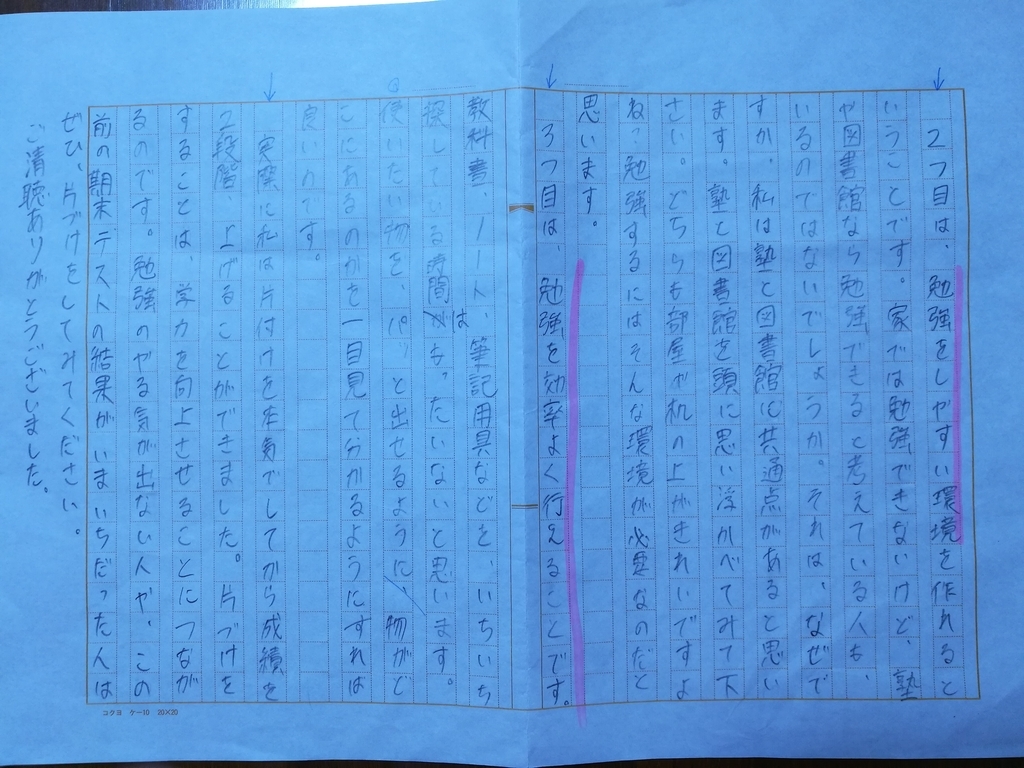 2つ目は、勉強をしやすい環境を作れると
いうことです。家では勉強できないけど、塾
や図書館なら勉強できると考えている人も、
いるのではないでしょうか。それは、なぜで
すか。私は塾と図書館に共通点があると思い
ます。塾と図書館を頭に思い浮かべてみて下
さい。どちらも部屋や机の上がきれいですよ
ね？勉強するにはそんな環境が必要なのだと
思います。
3つ目は、勉強を効率よく行えることです。
教科書、ノート、筆記用具などを、いちいち
探している時間はもったいないと思います。
使いたい物を、パッと出せるように、物がど
こにあるのかを一目見て分かるようにすれば
良いのです。
実際に私は片付けを本気でしてから成績を
2段階、上げることができました。片づけを
することは、学力を向上させることにつなが
るのです。勉強のやる気が出ない人や、この
前の期末テストの結果がいまいちだった人は
ぜひ、片づけをしてみてください。
ご清聴ありがとうございました。
コクヨ ケー10 20×20